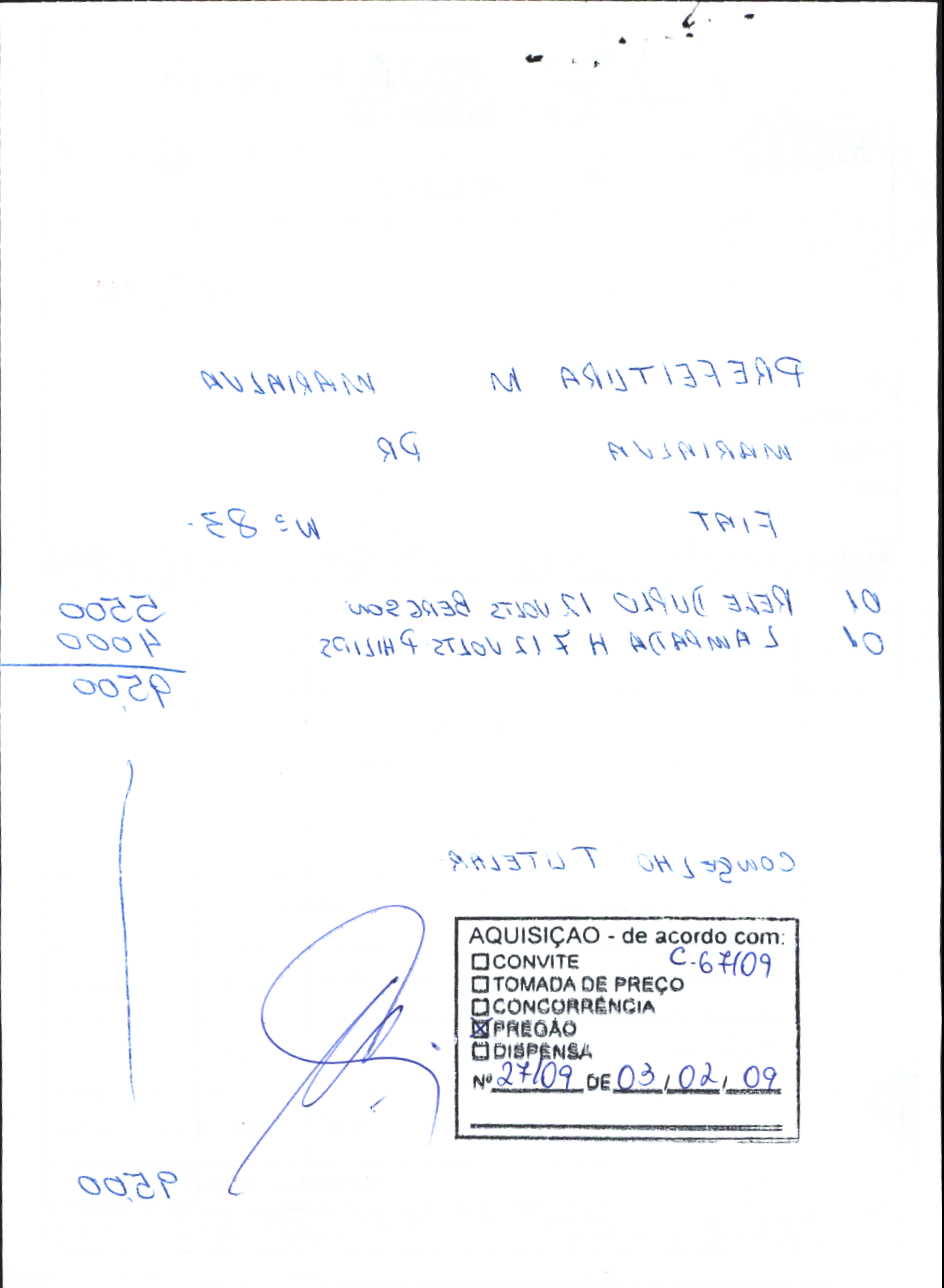 PREFEITURA M MARIALVA
MARIALVA PR
FIAT Nº 83.
01 RELE DUPLO 12 VOLTS BERGSON 5500
01 LAMPADA H7 12 VOLTS PHILIPS 4000
9500
CONSELHO TUTELAR
AQUISIÇAO - de acordo com:
☐ CONVITE C-67/09
☐ TOMADA DE PREÇO
☐ CONCORRÊNCIA
☒ PREGÃO
☐ DISPENSA
Nº 27/09 DE 03/02/09
9500